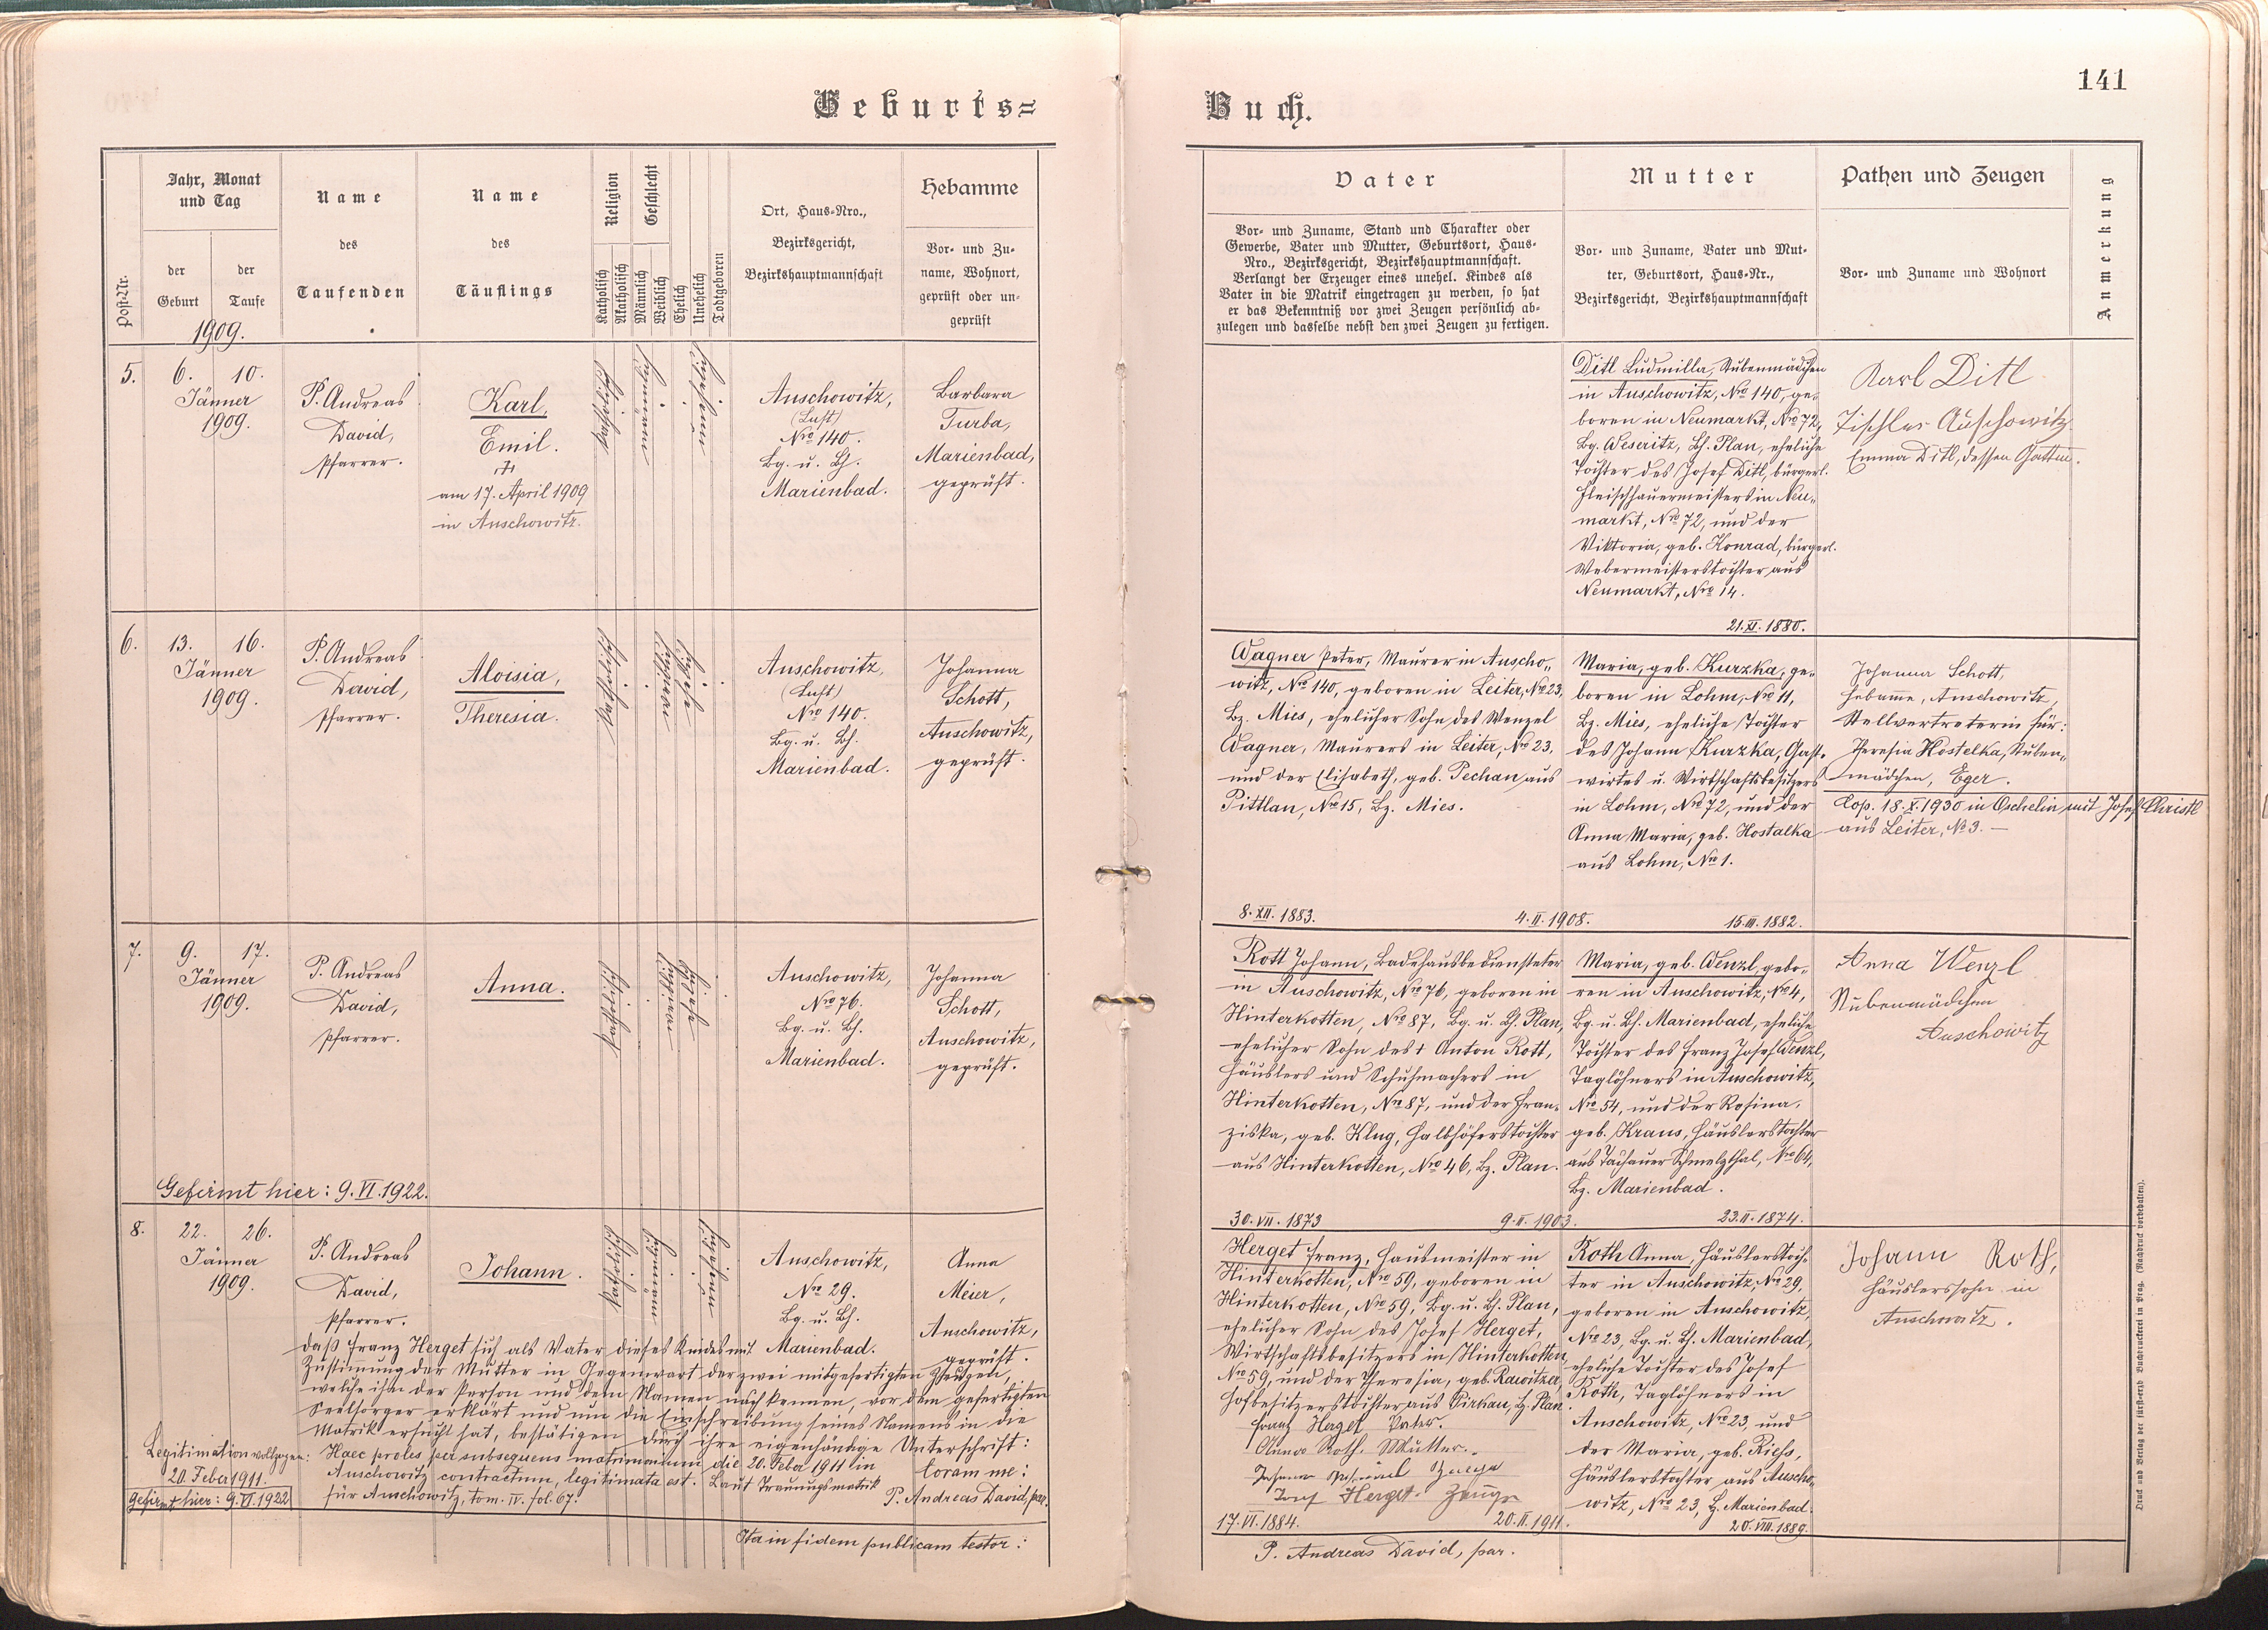 Geburts=
Buch.
141
Post-Nr.
Jahr, Monat
und Tag
der
Geburt
der
Taufe
1909.
Name
des
Taufenden
Name
des
Täuflings
Religion
Katholisch
Akatholisch
Geschlecht
Männlich
Weiblich
Ehelich
Unehelich
Todtgeboren
Ort, Haus-Nro.,
Bezirksgericht,
Bezirkshauptmannschaft
Hebamme
Vor- und Zu-
name, Wohnort,
geprüft oder un-
geprüft
Vater
Vor- und Zuname, Stand und Charakter oder
Gewerbe, Vater und Mutter, Geburtsort, Haus-
Nro., Bezirksgericht, Bezirkshauptmannschaft.
Verlangt der Erzeuger eines unehel. Kindes als
Vater in die Matrik eingetragen zu werden, so hat
er das Bekenntniß vor zwei Zeugen persönlich ab-
zulegen und dasselbe nebst den zwei Zeugen zu fertigen.
Mutter
Vor- und Zuname, Vater und Mut-
ter, Geburtsort, Haus-Nr.,
Bezirksgericht, Bezirkshauptmannschaft
Pathen und Zeugen
Vor- und Zuname und Wohnort
Anmerkung
5.
6. 10.
Jänner
1909.
P. Andreas
David,
Pfarrer.
Karl,
Emil.
am 17. April 1909
in Auschowitz.
Auschowitz,
(Lust)
Nro 140.
Bg. u. Bh.
Marienbad.
Barbara
Turba,
Marienbad,
geprüft.
Ditl Ludmilla, Stubenmädchen
in Auschowitz, Nro 140, ge-
boren in Neumarkt, Nro 72,
Bg. Weseritz, Bh. Plan, eheliche
Tochter des Josef Ditl, bürgerl.
Fleischhauermeisters in Neu-
markt, Nro 72, und der
Viktoria, geb. Konrad, bürgerl.
Webermeisterstochter aus
Neumarkt, Nro 14.
21. XI. 1880.
Karl Ditl
Tischler Auschowitz
Emma Ditl, dessen Gattin.
6.
13. 16.
Jänner
1909.
P. Andreas
David,
Pfarrer.
Aloisia,
Theresia.
Auschowitz,
(Lust)
Nro 140.
Bg. u. Bh.
Marienbad.
Johanna
Schott,
Auschowitz,
geprüft.
Wagner Peter, Maurer in Auscho-
witz, Nro 140, geboren in Leiter, Nro 23,
Bz. Mies, ehelicher Sohn des Wenzel
Wagner, Maurers in Leiter, Nro 23,
und der Elisabeth, geb. Pechan aus
Pittlan, Nro 15, Bz. Mies.
8. XII. 1883.
4. II. 1908.
Maria, geb. Kurzka, ge-
boren in Lohm, Nro 11,
Bz. Mies, eheliche Tochter
des Johann Kurzka, Gast-
wirtes u. Wirtschaftsbesitzers
in Lohm, Nro 72, und der
Anna Maria, geb. Hostalka
aus Lohm, Nro 1.
15. III. 1882.
Johanna Schott,
Hebamme, Auschowitz,
Stellvertreterin für:
Theresia Hostelka, Stuben-
mädchen, Eger.
Cop. 18. X. 1930 in Oschelin mit Josef Christl
aus Leiter, No 3. —
7.
9. 17.
Jänner
1909.
P. Andreas
David,
Pfarrer.
Anna.
Auschowitz,
Nro 76.
Bg. u. Bh.
Marienbad.
Johanna
Schott,
Auschowitz,
geprüft.
Gefirmt hier: 9. VI. 1922.
Rott Johann, Badehausbediensteter
in Auschowitz, Nro 76, geboren in
Hinterkotten, Nro 87, Bg. u. Bh. Plan,
ehelicher Sohn des † Anton Rott,
Häuslers und Schuhmachers in
Hinterkotten, Nro 87, und der Fran-
ziska, geb. Klug, Halbhöferstochter
aus Hinterkotten, Nro 46, Bz. Plan.
30. VII. 1873
9. II. 1903.
Maria, geb. Wenzl, gebo-
ren in Auschowitz, No 4,
Bg. u. Bh. Marienbad, eheliche
Tochter des Franz Josef Wenzl,
Taglöhners in Auschowitz,
Nro 54, und der Rosina,
geb. Kraus, Häuslerstochter
aus Tachauer Schmelzthal, Nro 64,
Bz. Marienbad.
23. II. 1874.
Anna Wenzl
Stubenmädchen
Auschowitz
8.
22. 26.
Jänner
1909.
P. Andreas
David,
Pfarrer.
Johann.
Auschowitz,
Nro 29.
Bg. u. Bh.
Marienbad.
Anna
Meier,
Auschowitz,
geprüft.
Daß Franz Herget sich als Vater dieses Kindes mit
Zustimmung der Mutter in Gegenwart der zwei mitgefertigten Zeugen,
welche ihn der Person und dem Namen nach kennen, vor dem gefertigten
Seelsorger erklärt und um die Einschreibung seines Namens in die
Matrik ersucht hat, bestätigen durch ihre eigenhändige Unterschrift:
Legitimation vollzogen:
20. Feber 1911.
Gefirmt hier: 9. VI. 1922
Haec proles per subsequens matrimonium die 20. Feber 1911 in
Auschowitz contractum, legitimata est. Laut Trauungsmatrik
für Auschowitz, tom. IV. fol. 67.
Coram me:
P. Andreas David, par.
Ita in fidem publicam testor:
Herget Franz, Hausmeister in
Hinterkotten, Nro 59, geboren in
Hinterkotten, Nro 59, Bg. u. Bh. Plan,
ehelicher Sohn des Josef Herget,
Wirtschaftsbesitzers in Hinterkotten,
Nro 59, und der Theresia, geb. Rawitzer,
Hofbesitzerstochter aus Pirkau, Bz. Plan.
Franz Herget Vater.
Anna Roth. Mutter.
Zeuge
Josef Herget. Zeuge
17. VI. 1884.
20. II. 1911.
P. Andreas David, par.
Roth Anna, Häuslerstoch-
ter in Auschowitz, Nro 29,
geboren in Auschowitz,
Nro 23, Bg. u. Bh. Marienbad,
eheliche Tochter des Josef
Roth, Taglöhners in
Auschowitz, Nro 23, und
der Maria, geb. Riehs,
Häuslerstochter aus Auscho-
witz, Nro 23, Bz. Marienbad.
20. VIII. 1889.
Johann Roth,
Häuslerssohn in
Auschowitz.
Druck und Verlag der fürst-erzb Buchdruckerei in Prag. (Nachdruck vorbehalten).